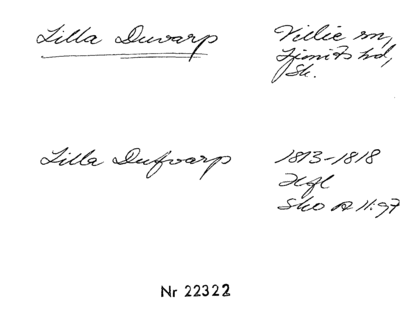 Lilla Duvarp
Villie sn,
Ljunits hd,
Sk.
Lilla Dufvarp
1813-1818
Hfl
Sko A II:97
Nr 22322